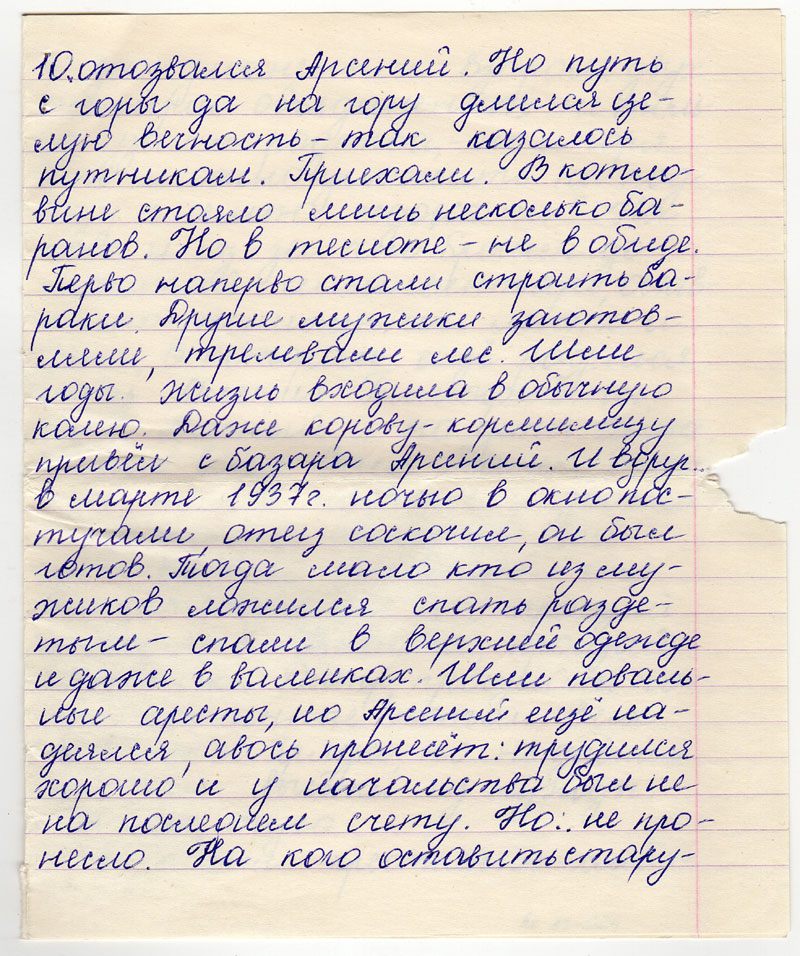 10. отозвался Арсений. Но путь
с горы да на гору длился це-
лую вечность – так казалось
путникам. Приехали. В котло-
вине стояло лишь несколько ба-
ранов. Но в тесноте – не в обиде.
Перво наперво стали строить ба-
раки. Другие мужики заготов-
ляли, трелевали лес. Шли
годы. Жизнь входила в обычную
колею. Даже корову-кормилицу
привёл с базара Арсений. И вдруг..
в марте 1937г. ночью в окно пос-
тучали, отец соскочил, он был
готов. Тогда мало кто из му-
жиков ложился спать разде-
тым – спали в верхней одежде
и даже в валенках. Шли поваль-
ные аресты, но Арсений ещё на-
деялся, авось пронесёт: трудился
хорошо и у начальства был не
на последнем счету. Но.. не про-
несло. На кого оставить стару-